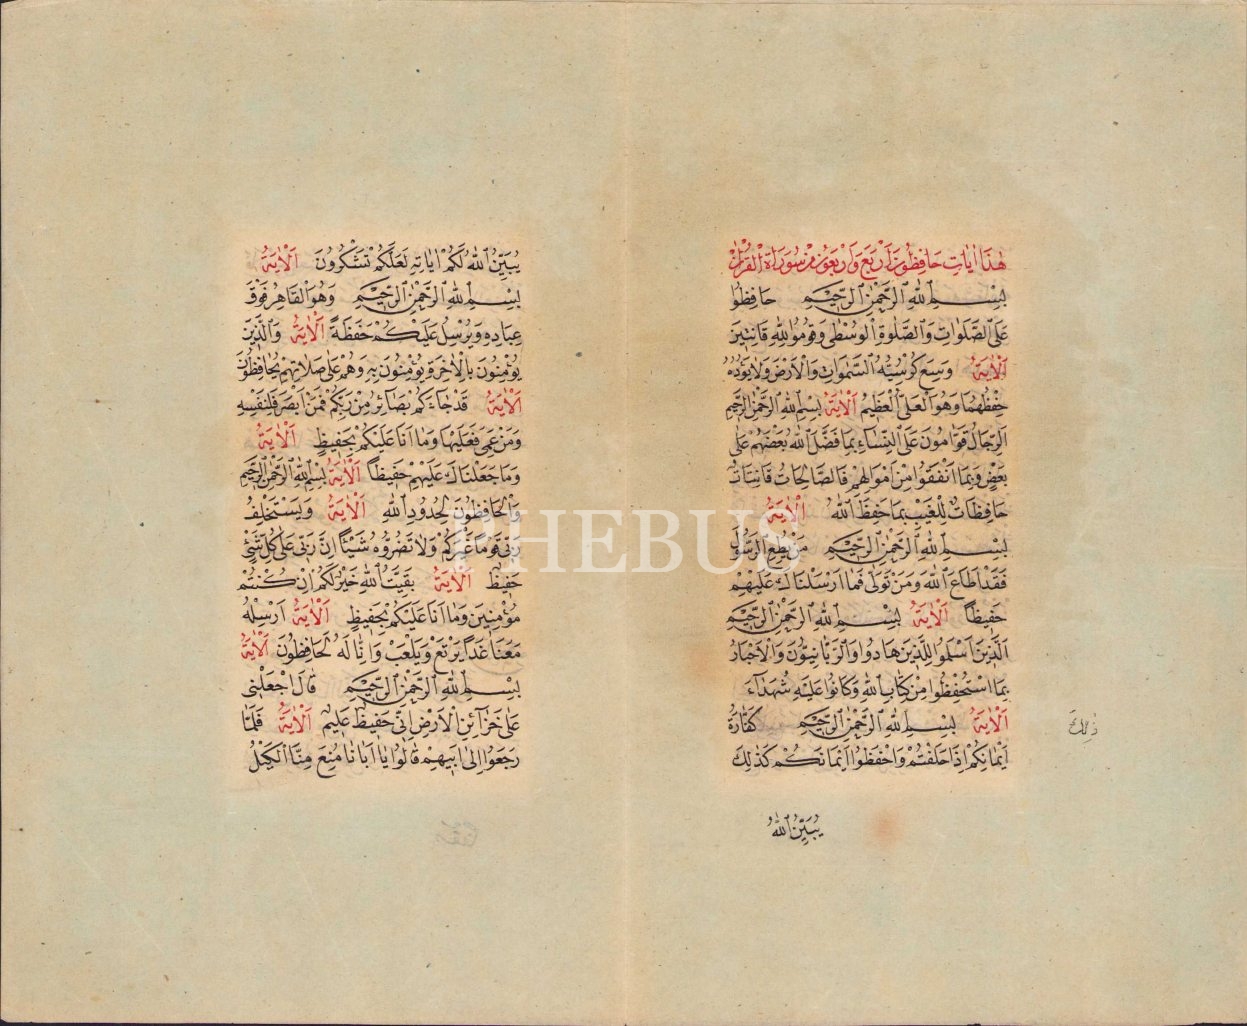 هٰذَا اٰيَاتِ حَافِظُونَ اَرْبَعَ وَاَرْبَعُونَ مِنْ سُورَاةِ الْقُرْاٰنِ
بِسْمِ اللهِ الرَّحْمٰنِ الرَّحِيمِ حَافِظُوا
عَلَى الصَّلَوَاتِ وَالصَّلٰوةِ الْوُسْطٰى وَقُومُوا لِلّٰهِ قَانِتِينَ
اَلْاٰيَةُ وَسِعَ كُرْسِيُّهُ السَّمٰوَاتِ وَالْاَرْضَ وَلَا يَؤُدُهُ
حِفْظُهُمَا وَهُوَ الْعَلِىُّ الْعَظِيمُ اَلْاٰيَةُ بِسْمِ اللهِ الرَّحْمٰنِ الرَّحِيمِ
اَلرِّجَالُ قَوَّامُونَ عَلَى النِّسَاءِ بِمَا فَضَّلَ اللهُ بَعْضَهُمْ عَلٰى
بَعْضٍ وَبِمَا اَنْفَقُوا مِنْ اَمْوَالِهِمْ فَالصَّالِحَاتُ قَانِتَاتٌ
حَافِظَاتٌ لِلْغَيْبِ بِمَا حَفِظَ اللهُ اَلْاٰيَةُ
بِسْمِ اللهِ الرَّحْمٰنِ الرَّحِيمِ مَنْ يُطِعِ الرَّسُولَ
فَقَدْ اَطَاعَ اللهَ وَمَنْ تَوَلّٰى فَمَا اَرْسَلْنَاكَ عَلَيْهِمْ
حَفِيظًا اَلْاٰيَةُ بِسْمِ اللهِ الرَّحْمٰنِ الرَّحِيمِ
اَلَّذِينَ اَسْلَمُوا لِلَّذِينَ هَادُوا وَالرَّبَّانِيُّونَ وَالْاَحْبَارُ
بِمَا اسْتُحْفِظُوا مِنْ كِتَابِ اللهِ وَكَانُوا عَلَيْهِ شُهَدَاءَ
اَلْاٰيَةُ بِسْمِ اللهِ الرَّحْمٰنِ الرَّحِيمِ كَفَّارَةُ
ذٰلِكَ
اَيْمَانِكُمْ اِذَا حَلَفْتُمْ وَاحْفَظُوا اَيْمَانَكُمْ كَذٰلِكَ
يُبَيِّنُ اللهُ
يُبَيِّنُ اللهُ لَكُمْ اٰيَاتِهِ لَعَلَّكُمْ تَشْكُرُونَ اَلْاٰيَةُ
بِسْمِ اللهِ الرَّحْمٰنِ الرَّحِيمِ وَهُوَ الْقَاهِرُ فَوْقَ
عِبَادِهِ وَيُرْسِلُ عَلَيْكُمْ حَفَظَةً اَلْاٰيَةُ وَالَّذِينَ
يُؤْمِنُونَ بِالْاٰخِرَةِ يُؤْمِنُونَ بِهِ وَهُمْ عَلٰى صَلَاتِهِمْ يُحَافِظُونَ
اَلْاٰيَةُ قَدْ جَاءَكُمْ بَصَائِرُ مِنْ رَبِّكُمْ فَمَنْ اَبْصَرَ فَلِنَفْسِهِ
وَمَنْ عَمِىَ فَعَلَيْهَا وَمَا اَنَا عَلَيْكُمْ بِحَفِيظٍ اَلْاٰيَةُ
وَمَا جَعَلْنَاكَ عَلَيْهِمْ حَفِيظًا اَلْاٰيَةُ بِسْمِ اللهِ الرَّحْمٰنِ الرَّحِيمِ
وَالْحَافِظُونَ لِحُدُودِ اللهِ اَلْاٰيَةُ وَيَسْتَخْلِفُ
رَبِّى قَوْمًا غَيْرَكُمْ وَلَا تَضُرُّوهُ شَيْئًا اِنَّ رَبِّى عَلٰى كُلِّ شَىْءٍ
حَفِيظٌ اَلْاٰيَةُ بَقِيَّتُ اللهِ خَيْرٌ لَكُمْ اِنْ كُنْتُمْ
مُؤْمِنِينَ وَمَا اَنَا عَلَيْكُمْ بِحَفِيظٍ اَلْاٰيَةُ اَرْسِلْهُ
مَعَنَا غَدًا يَرْتَعْ وَيَلْعَبْ وَاِنَّا لَهُ لَحَافِظُونَ اَلْاٰيَةُ
بِسْمِ اللهِ الرَّحْمٰنِ الرَّحِيمِ قَالَ اجْعَلْنِى
عَلٰى خَزَائِنِ الْاَرْضِ اِنِّى حَفِيظٌ عَلِيمٌ اَلْاٰيَةُ فَلَمَّا
رَجَعُوا اِلٰى اَبِيهِمْ قَالُوا يَا اَبَانَا مُنِعَ مِنَّا الْكَيْلُ
PHEBUS